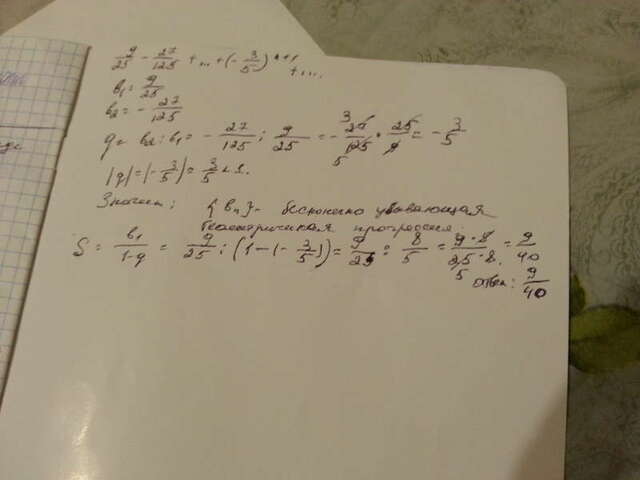 9/25 - 27/125 + ... + (-3/5)^n+1 + ...
b1 = 9/25
b2 = - 27/125
q = b2 : b1 = - 27/125 : 9/25 = - 27/125 · 25/9 = - 3/5
|q| = |- 3/5| = 3/5 < 1.
Значит: {bn} - бесконечно убывающая
геометрическая прогрессия.
S = b1/1-q = 9/25 : (1-(-3/5)) = 9/25 : 8/5 = 9·5/25·8 = 9/40
Ответ: 9/40